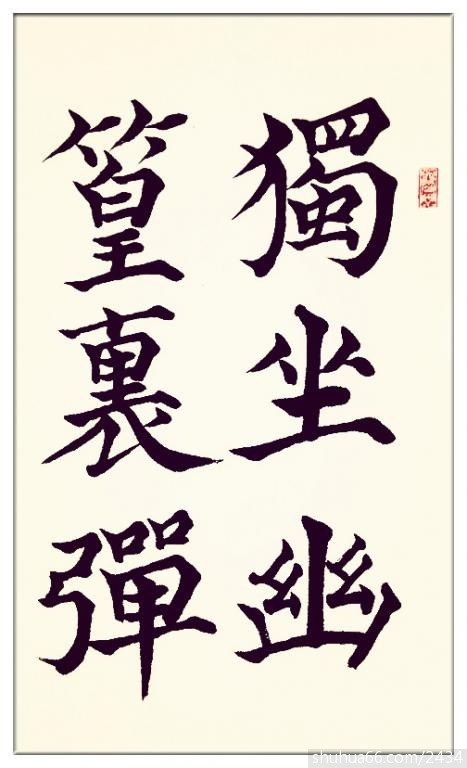 獨坐幽
篁裏彈
shuhua66.com/2434